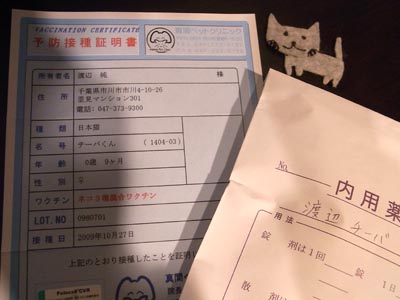 VACCINATION CERTIFICATE
予防接種証明書
真間ペットクリニック
所有者名 渡辺 純 様
住所 千葉県市川市市川4-10-26
里見マンション301
電話:047-373-9300
種類 日本猫
名号 チーバくん (1404-03)
年齢 0歳 9ヶ月
性別 ♀
ワクチン ネコ3種混合ワクチン
LOT.NO 0980701
接種日 2009年10月27日
上記のとおり接種したことを証明し
真間
院長
No.
内用薬
渡辺 チーバ
用法
錠 剤は1回
錠
散 剤は